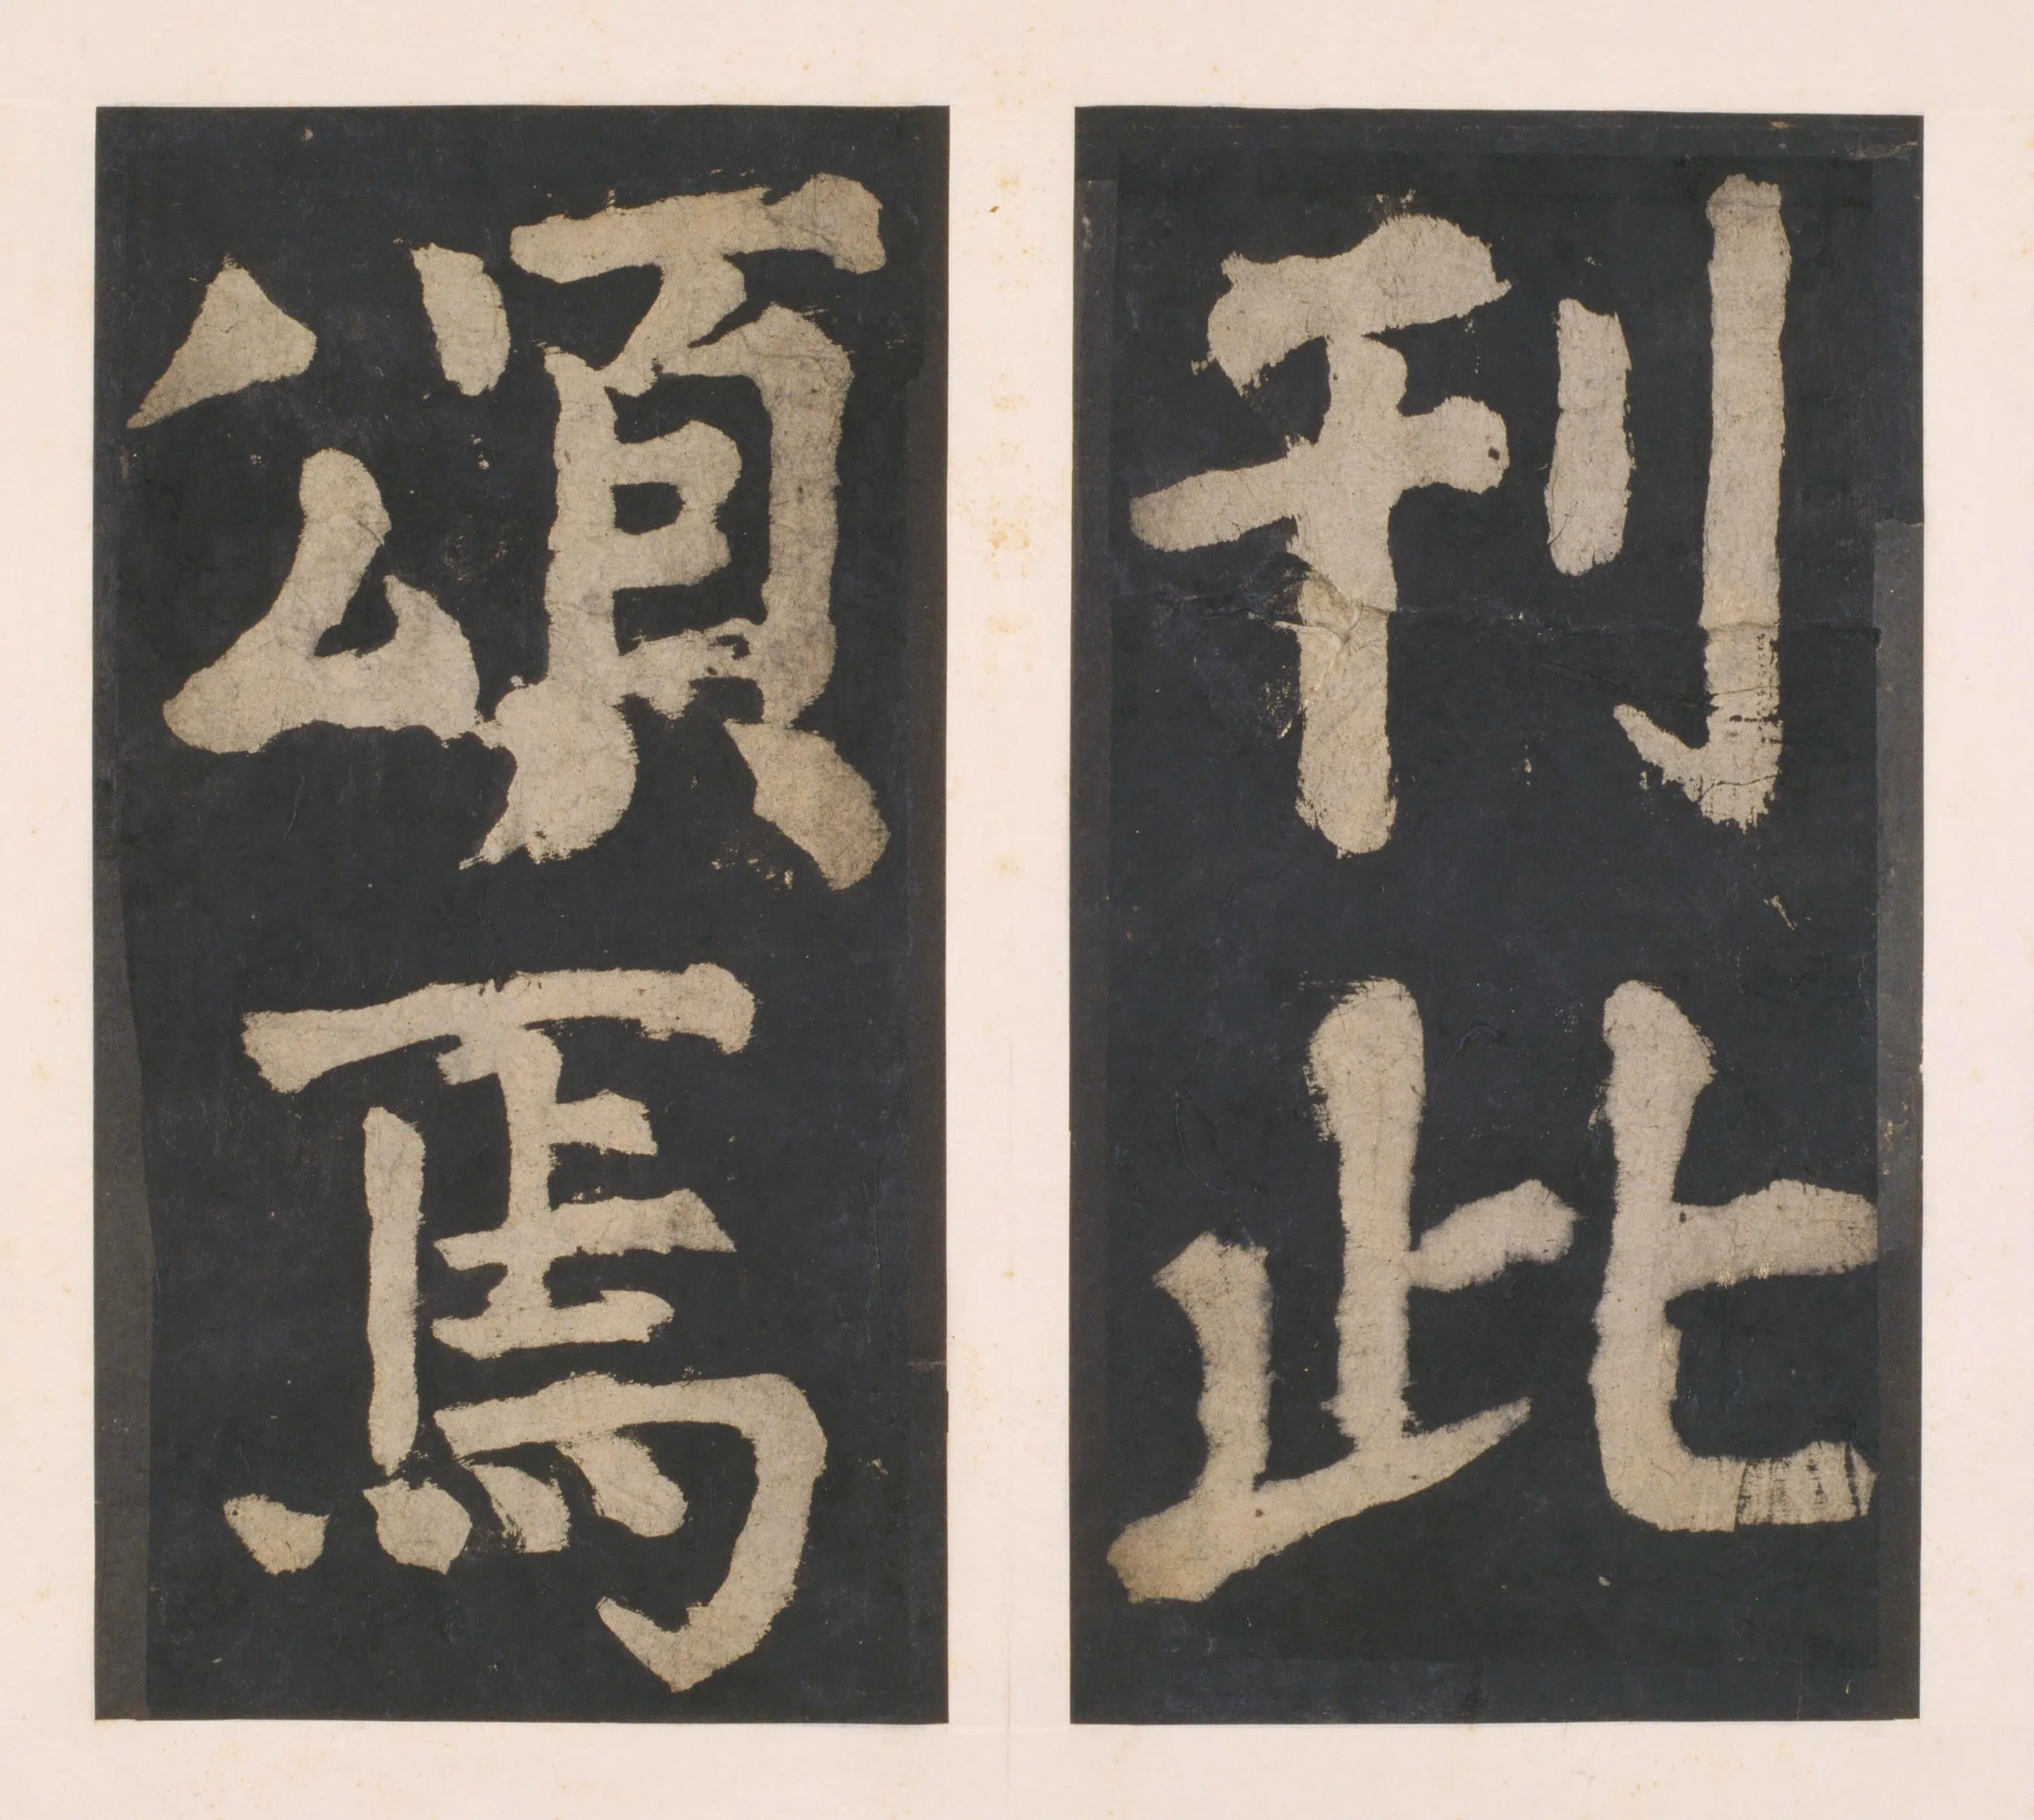 刊此
頌焉